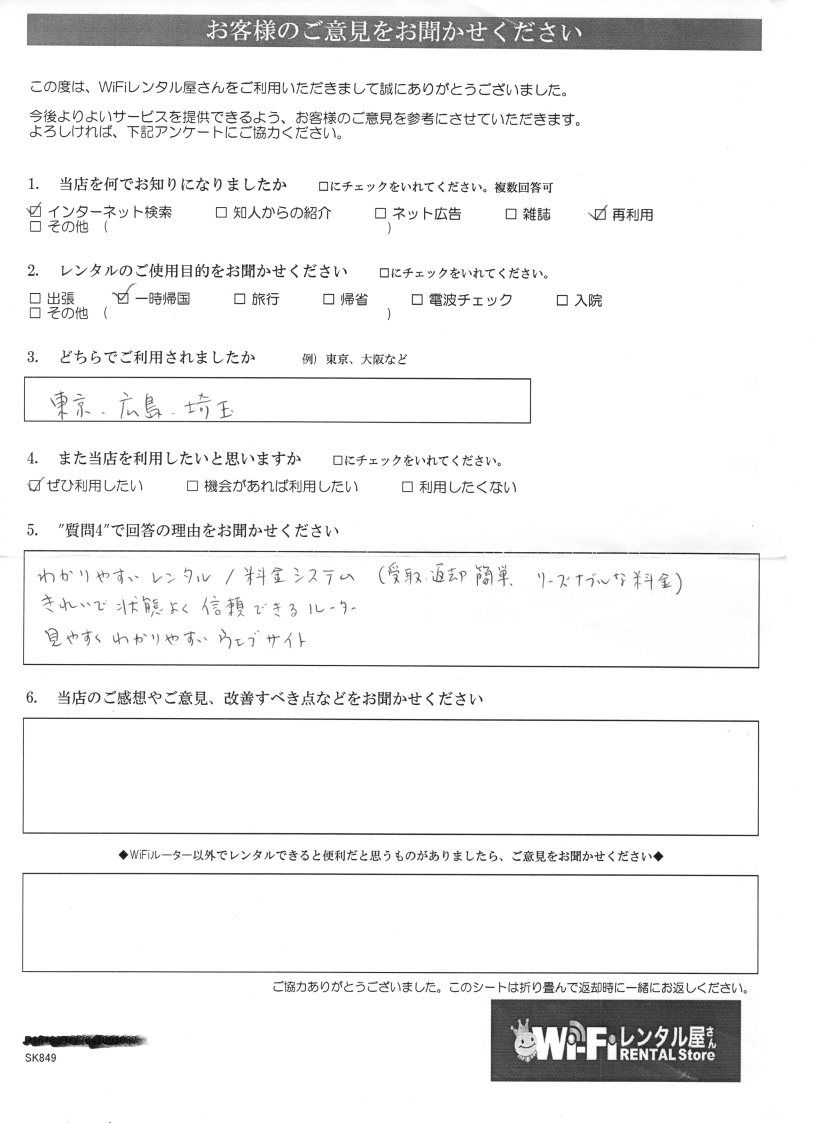 お客様のご意見をお聞かせください
この度は、WiFiレンタル屋さんをご利用いただきまして誠にありがとうございました。
今後よりよいサービスを提供できるよう、お客様のご意見を参考にさせていただきます。
よろしければ、下記アンケートにご協力ください。
1. 当店を何でお知りになりましたか □にチェックをいれてください。複数回答可
☑ インターネット検索 □ 知人からの紹介 □ ネット広告 □ 雑誌 ☑ 再利用
□ その他 ( )
2. レンタルのご使用目的をお聞かせください □にチェックをいれてください。
□ 出張 ☑ 一時帰国 □ 旅行 □ 帰省 □ 電波チェック □ 入院
□ その他 ( )
3. どちらでご利用されましたか 例) 東京、大阪など
東京、広島、埼玉
4. また当店を利用したいと思いますか □にチェックをいれてください。
☑ ぜひ利用したい □ 機会があれば利用したい □ 利用したくない
5. "質問4"で回答の理由をお聞かせください
わかりやすいレンタル / 料金システム (受取・返却簡単、リーズナブルな料金)
きれいで状態よく信頼できるルーター
見やすくわかりやすいウェブサイト
6. 当店のご感想やご意見、改善すべき点などをお聞かせください
◆WiFiルーター以外でレンタルできると便利だと思うものがありましたら、ご意見をお聞かせください◆
ご協力ありがとうございました。このシートは折り畳んで返却時に一緒にお返しください。
SK849
Wi-Fiレンタル屋さん
RENTAL Store